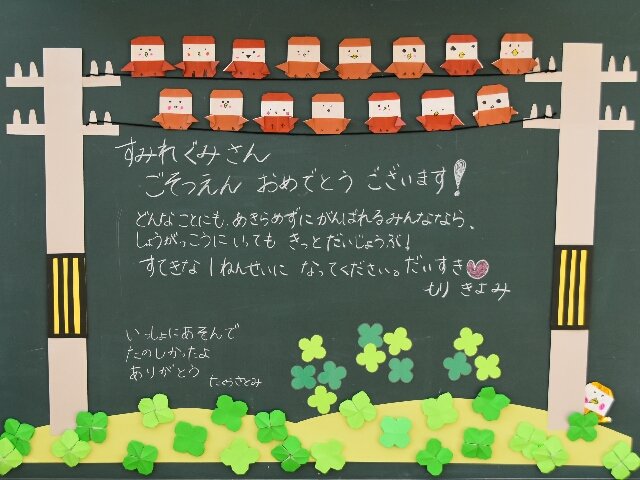 すみれぐみさん
ごそつえん おめでとう ございます!
どんなことにも、あきらめずにがんばれるみんななら、
しょうがっこうにいっても きっとだいじょうぶ!
すてきな 1ねんせいに なってください。だいすき
もり きよみ
いっしょにあそんで
たのしかったよ
ありがとう
さとみ